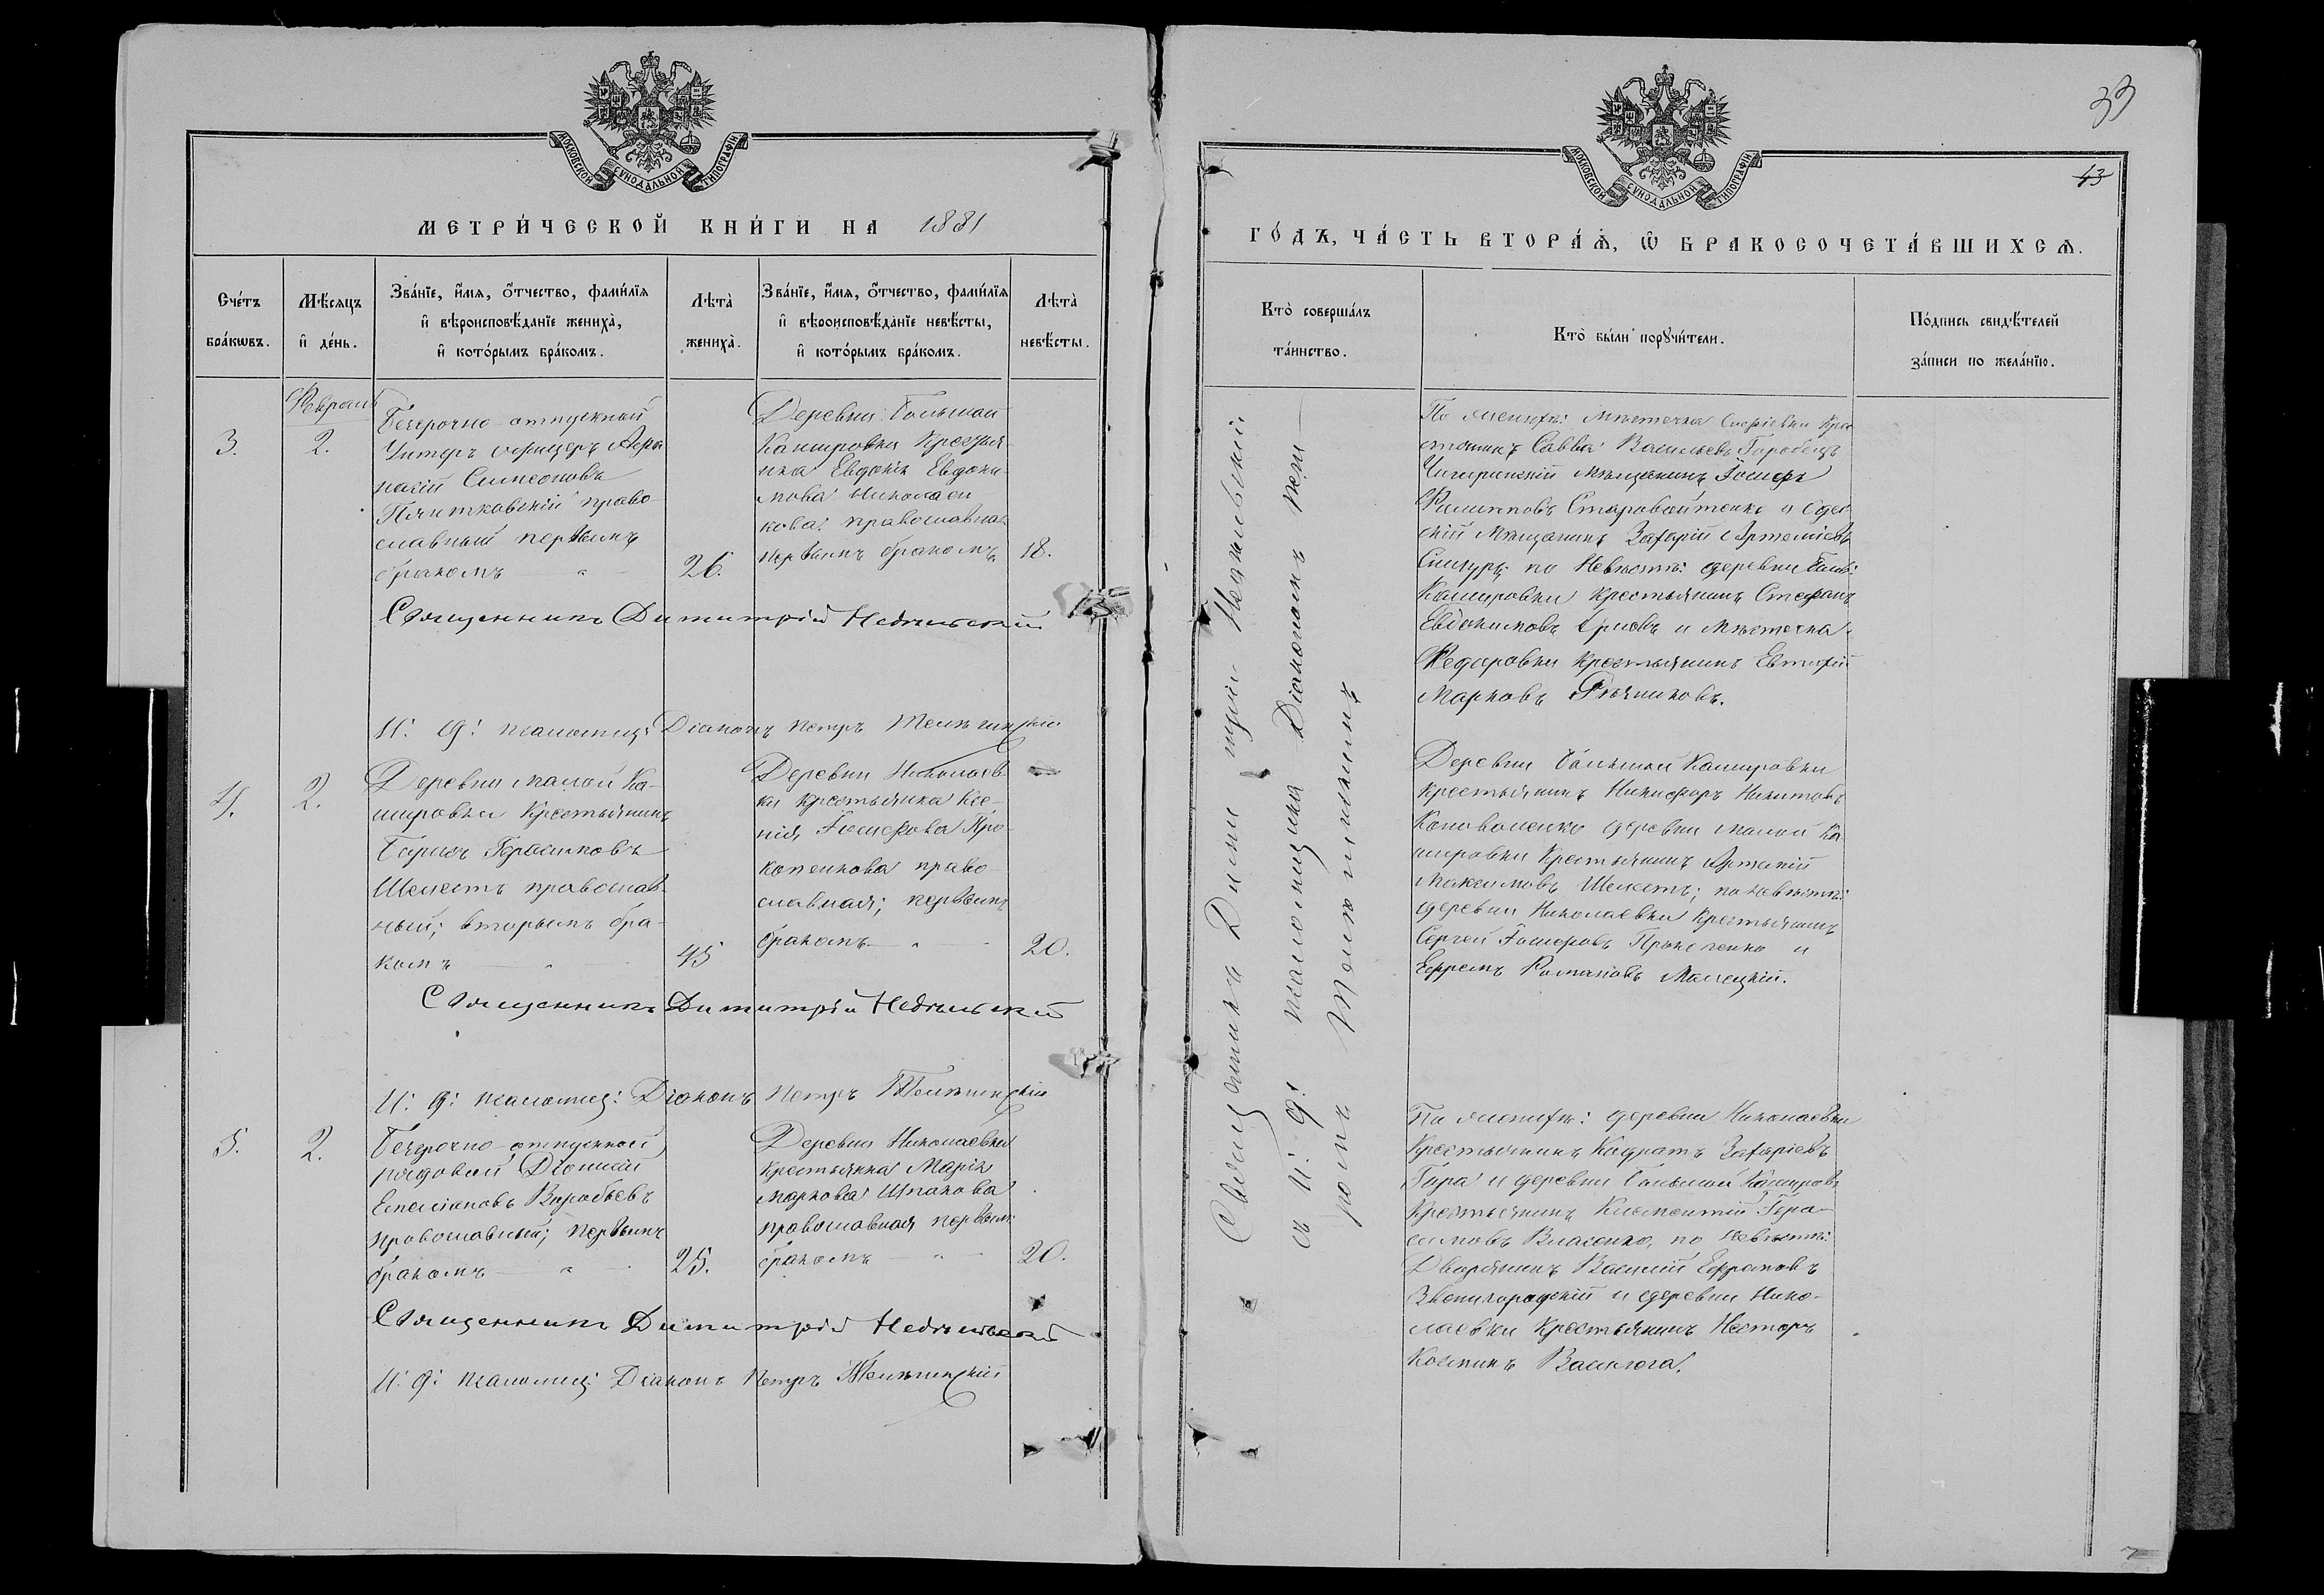 МОСКОВСКОЙ СѴНОДАЛЬНОЙ ТИПОГРАФІИ
МЕТРИ́ЧЕСКОЙ КНИ́ГИ НА 1881
Сче́тъ бра́кѡвъ.
Мѣ́сяцъ и҆ де́нь.
Зва́нїе, и҆́мя, ѻ҆́тчество, фами́лїя
и҆ вѣроисповѣ́данїе жениха̀,
и҆ кото́рымъ бра́комъ.
Лѣта̀ жениха̀.
Зва́нїе, и҆́мя, ѻ҆́тчество, фами́лїя
и҆ вѣроисповѣ́данїе невѣ́сты,
и҆ кото́рымъ бра́комъ.
Лѣта̀ невѣ́сты.
Февраль
3.
2.
Безсрочно-отпускный
Унтеръ офицеръ
Симеоновъ
Пятковскій право
славный первымъ
бракомъ
26.
Деревни Большой
Кашировки Крестья
нка Евдокія Евдоки
мова Николаен
кова православная
первымъ бракомъ
18.
Священникъ Димитрій Недѣльскій
И: д: псаломщ: Діаконъ Петръ
4.
2.
Деревни малой Ка-
шировки Крестьянинъ
Борисъ Герасимовъ
Шелестъ православ-
ный; вторымъ бра-
комъ
45
Деревни Николаев
ки крестьянка Ксе-
нія Іосифова Про
копенкова право
славная; первымъ
бракомъ
20.
Священникъ Димитрій Недѣльскій
И: д: псаломщ: Діаконъ Петръ
5.
2.
Безсрочно-отпускной
рядовой Діонисій
Емеліановъ Воробьевъ
православный; первымъ
бракомъ
25.
Деревни Николаевки
крестьянка Марія
Маркова Шпакова
православная первым
бракомъ
20.
Священникъ Димитрій Недѣльскій
И: д: псаломщ: Діаконъ Петръ
33
43
МОСКОВСКОЙ СѴНОДАЛЬНОЙ ТИПОГРАФІИ
ГО́ДЪ, ЧА́СТЬ ВТОРА́Я, Ѡ҆ БРАКОСОЧЕТА́ВШИХСЯ.
Кто̀ соверша́лъ та́инство.
Кто̀ бы́ли порꙋчи́тели.
По́дпись свидѣ́телей за́писи по жела́нїю.
Священникъ Димитрій Недѣльскій
съ И: д: псаломщика Діакономъ Пет
ромъ
По женихѣ: мѣстечка Софіевки Кре
стьянинъ Савва Васильевъ Горобецъ
Чигиринскій мѣщанинъ Іосифъ
Филипповъ Старовойтенко и Одес
скій мѣщанинъ Захарій Артеміевъ
по невѣстѣ: деревни Боль:
Кашировки крестьянинъ Стефанъ
Евдокимовъ и мѣстечка
Федоровки крестьянинъ Евтихій
Марковъ
Деревни большой Кашировки
крестьянинъ Никифоръ Никитовъ
Коноваленко деревни малой Ка
шировки крестьянинъ
Максимовъ Шелестъ; по невѣстѣ:
деревни Николаевки крестьянинъ
Сергей Іосифовъ Прокопенко и
Ефремъ Романовъ
По женихѣ: деревни Николаевки
Крестьянинъ Кодратъ Захаріевъ
Гира и деревни большой Кашировк
Крестьянинъ Климентій Гера
симовъ Власенко, по невѣстѣ:
Дворянинъ Василій
Звенигородскій и деревни Нико-
лаевки крестьянинъ Несторъ
Косминъ